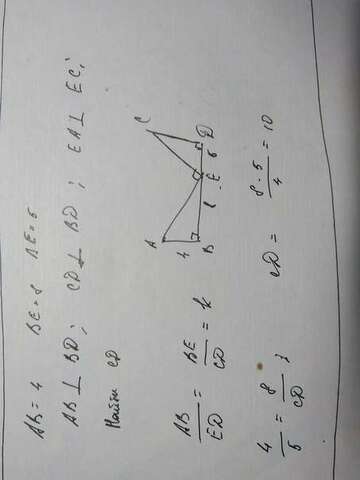 AB = 4 BE = 8 DE = 5
AB ⊥ BD; CD ⊥ BD; EA ⊥ EC;
Найти CD
A
C
4
B
8
E
5
D
AB/ED = BE/CD = k
4/5 = 8/CD; CD = 8·5/4 = 10